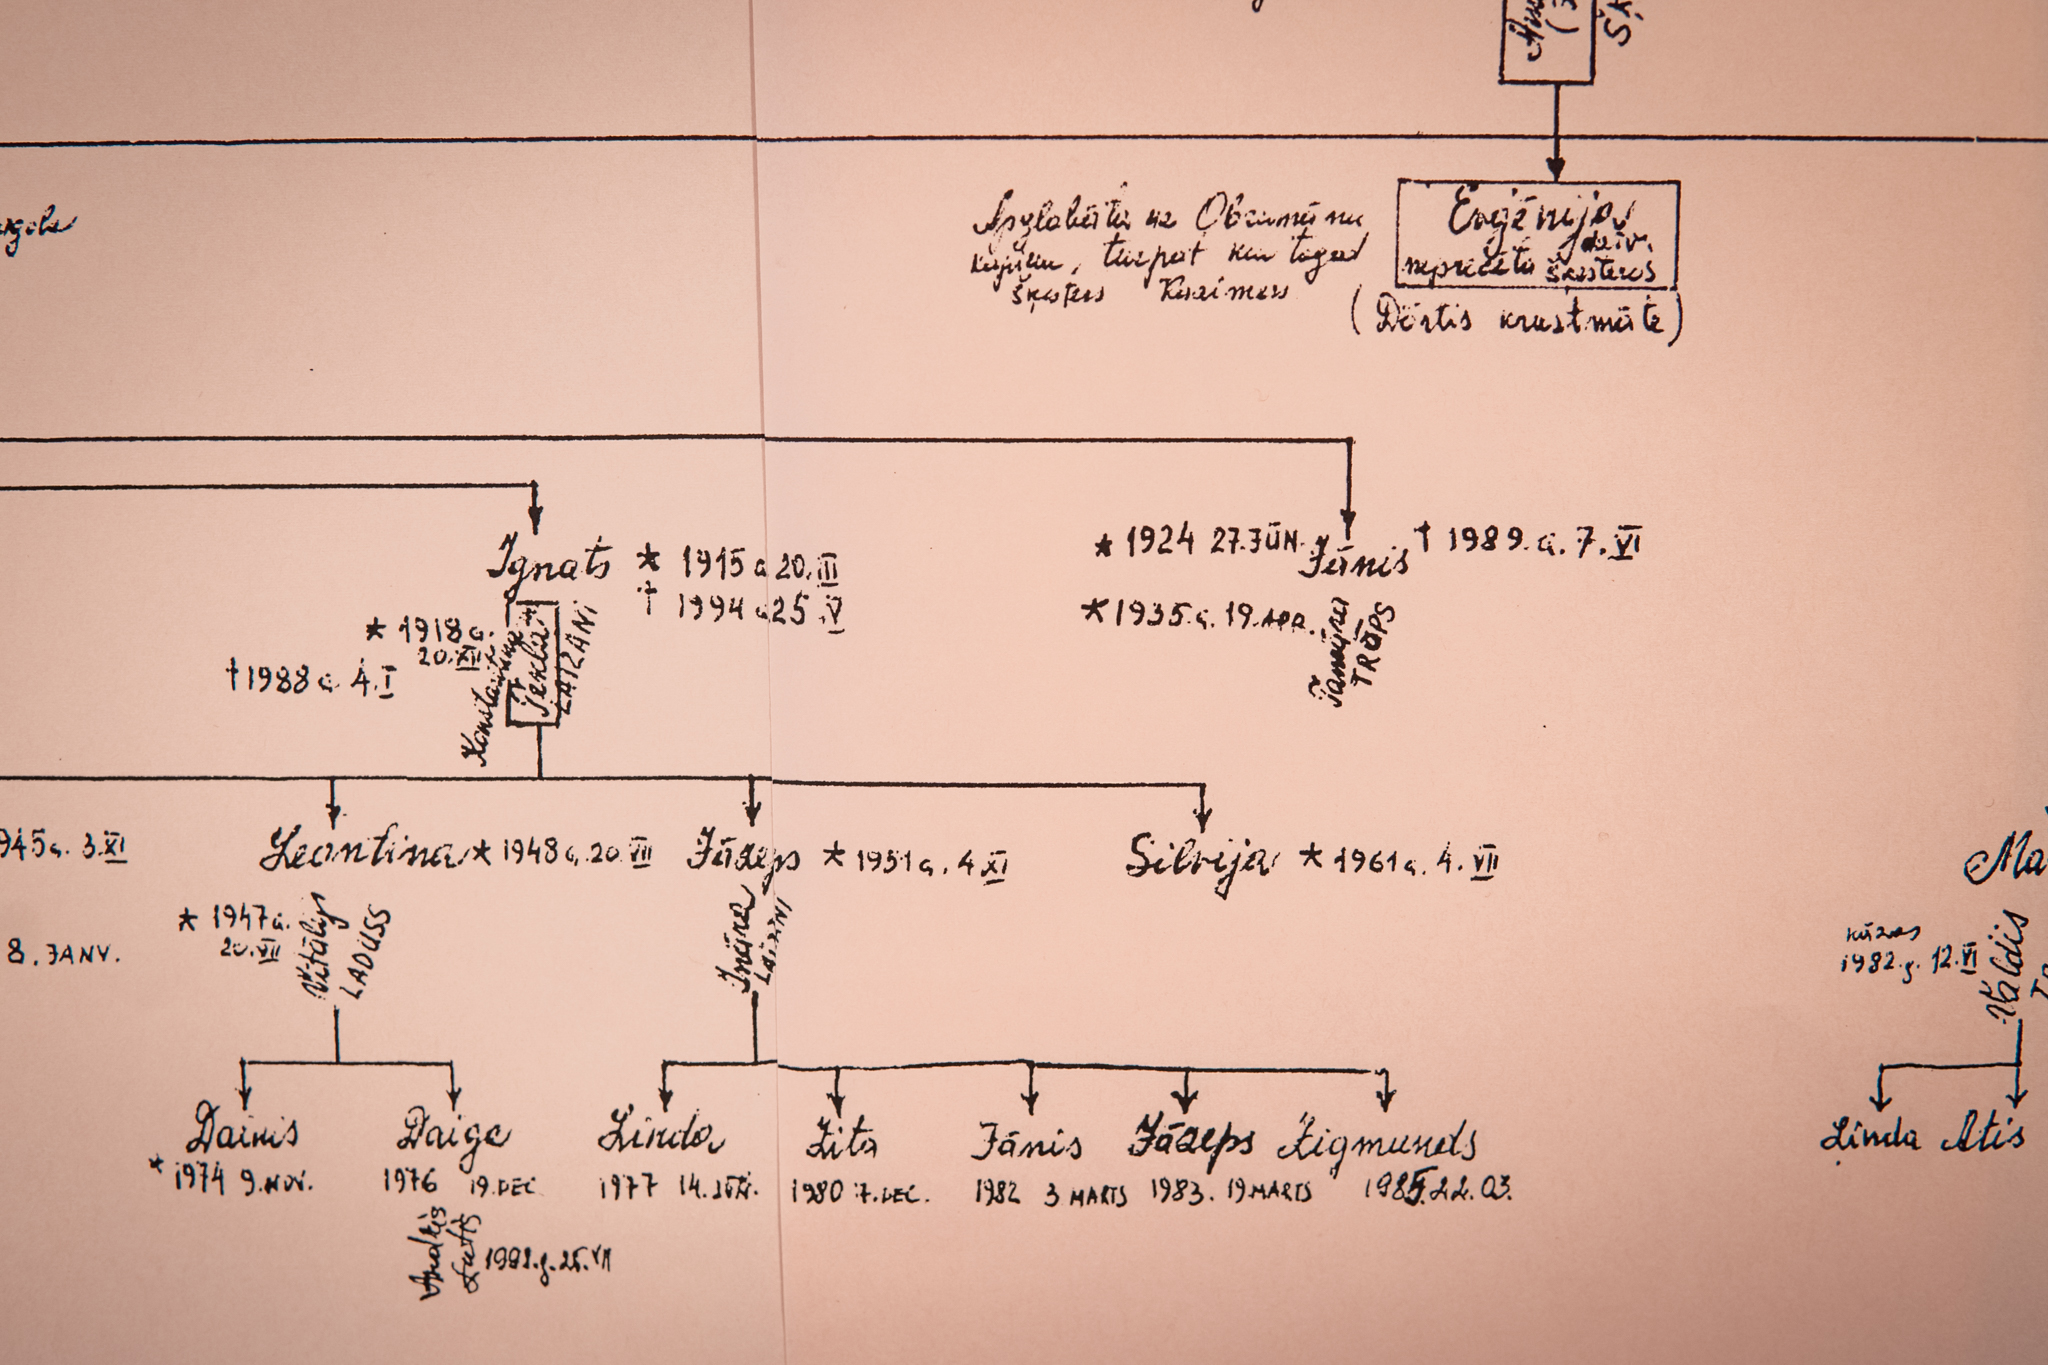 Eugēnija
dzīv.
neprecēta Šķesteros
(Dārtis krustmāte)
Apglabāta uz Obrumānu
kapiem, turpat kur tagad
Šķesters Kazimers
Ignats * 1915 g 20. III
† 1994 g 25 V
* 1918 g.
20. XII
† 1988 g 4. I
Tekla
* 1924 27. JŪN. Jānis † 1989. g. 7. VI
* 1935. g. 19. APR.
TRŪPS
945 g. 3. XI
8. JANV.
Leontina * 1948 g. 20. VII
Jāzeps * 1951 g. 4. XI
Silvija * 1961 g. 4. VII
Ma
* 1947 g.
20. VII
Vitālijs
LADUSS
Ināra
kāzas
1982. g. 12. VI
Valdis
Dainis
* 1974 9. NOV.
Daiga
1976 19. DEC
Linda
1977 14. JŪN.
Zita
1980 7. DEC.
Jānis
1982 3 MARTS
Jāzeps
1983. 19 MARTS
Zigmunds
1985. 22. 03.
Linda Atis